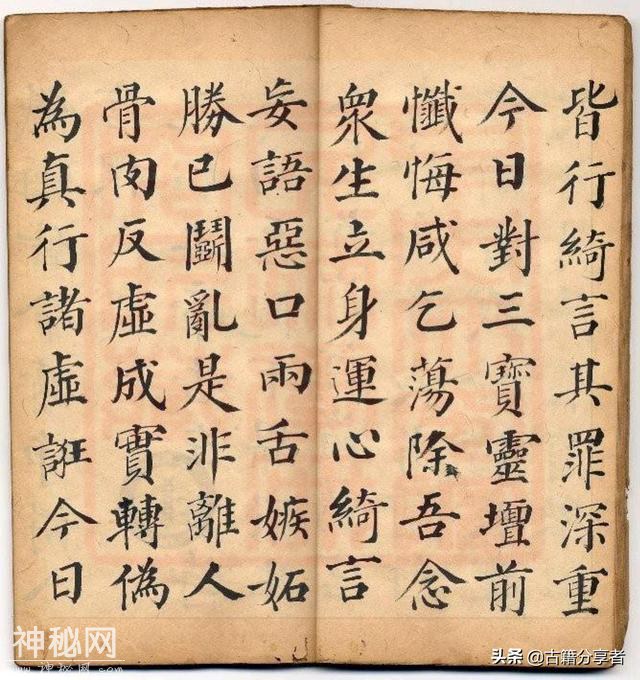 皆行綺言其罪深重
今日對三寶靈壇前
懺悔咸乞蕩除吾念
衆生立身運心綺言
妄語惡口兩舌嫉妬
勝已鬭亂是非離人
骨肉反虛成實轉偽
為真行諸虛誑今日
神秘网
www.神秘网.com
头条 @古籍分享者